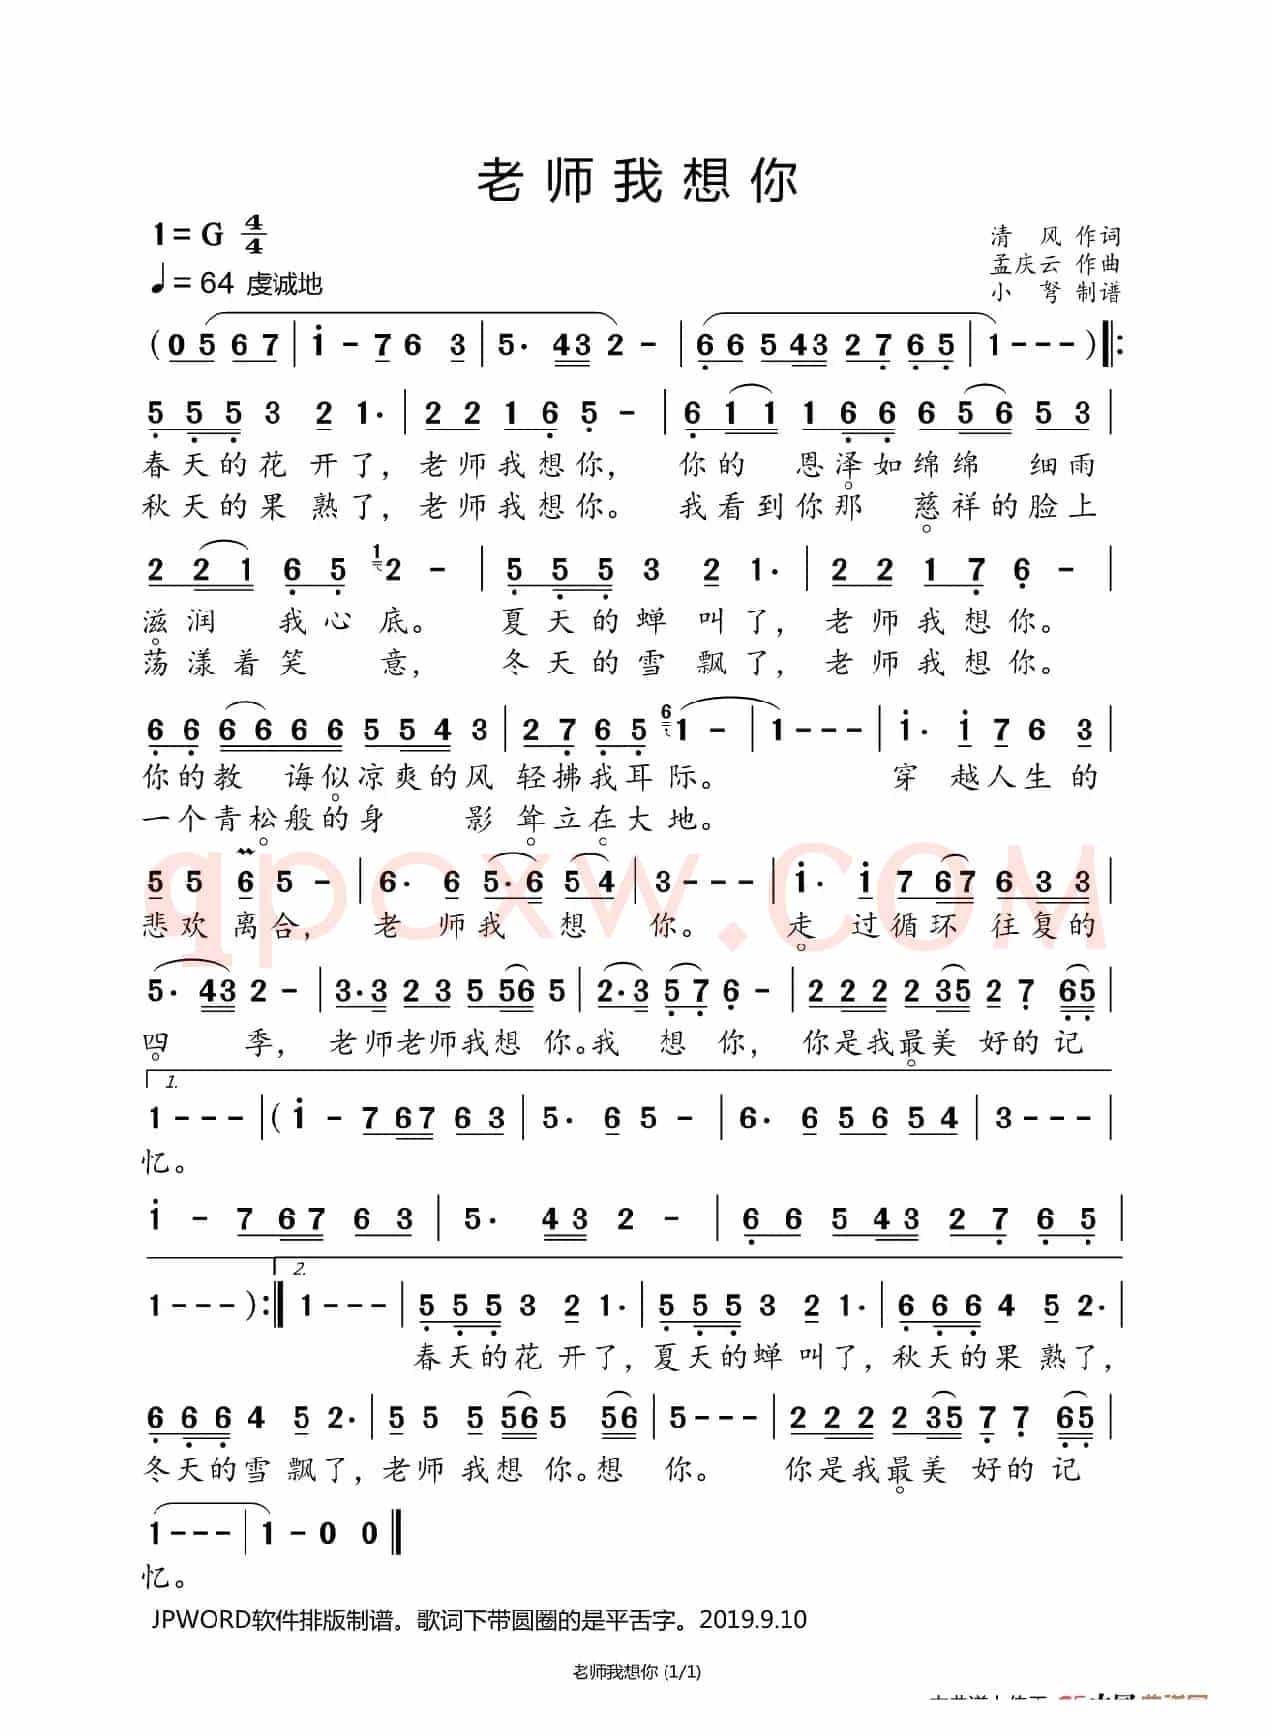 老师我想你
1=G 4/4
清 风 作词
♩=64 虔诚地
孟庆云 作曲
小 弩 制谱
(0 5 6 7 | i - 7 6 3 | 5· 43 2 - | 6 6 5 43 2 7 6 5 | 1 - - - ) ‖:
5 5 5 3 2 1· | 2 2 1 6 5 - | 6 1 1 1 6 6 6 5 6 5 3 |
春天的花 开了, 老师我想你, 你的 恩泽如绵绵 细雨
秋天的果 熟了, 老师我想你。 我看到你那 慈祥的脸上
2 2 1 6 5 1 2 - | 5 5 5 3 2 1· | 2 2 1 7 6 - |
滋润 我心底。 夏天的蝉 叫了, 老师我想你。
荡漾着笑 意, 冬天的雪 飘了, 老师我想你。
6 6 6 6 6 6 5 5 4 3 | 2 7 6 5 6 1 - | 1 - - - | i· i 7 6 3 |
你的教 诲似凉爽的风 轻拂我耳际。 穿 越人生的
一个青松般的身 影 耸立在大地。
qpcxw.COM
5 5 6 5 - | 6· 6 5·6 5 4 | 3 - - - | i· i 7 67 6 3 3 |
悲欢 离合, 老 师我 想 你。 走 过循环 往复的
5· 43 2 - | 3·3 2 3 5 56 5 | 2·3 5 7 6 - | 2 2 2 2 35 2 7 65 |
四 季, 老师老师我想 你。我 想 你, 你是我最美 好的 记
1.
1 - - - | ( i - 7 67 6 3 | 5· 6 5 - | 6· 6 5 6 5 4 | 3 - - - |
忆。
i - 7 67 6 3 | 5· 43 2 - | 6 6 5 43 2 7 6 5 |
2.
1 - - - ) :‖ 1 - - - | 5 5 5 3 2 1· | 5 5 5 3 2 1· | 6 6 6 4 5 2· |
春天的花 开了, 夏天的蝉 叫了, 秋天的果 熟了,
6 6 6 4 5 2· | 5 5 5 56 5 56 | 5 - - - | 2 2 2 2 35 7 7 65 |
冬天的雪 飘了, 老师 我想 你。想 你。 你是我最美 好的 记
1 - - - | 1 - 0 0 ‖
忆。
JPWORD软件排版制谱。歌词下带圆圈的是平舌字。2019.9.10
老师我想你 (1/1)